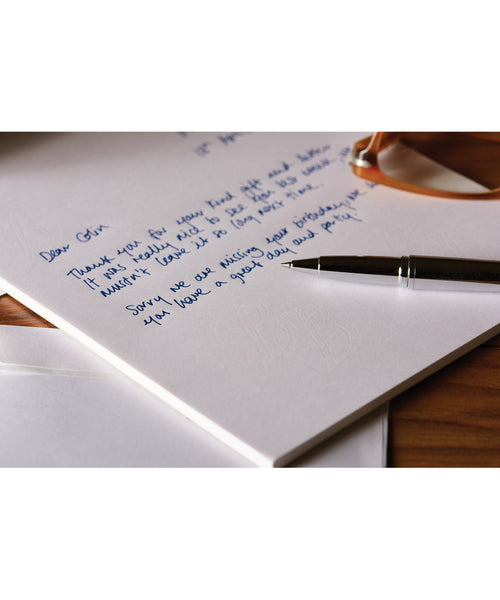 Dear Colin
Thank you for your kind gift and letter.
It was really nice to see you last week, we
mustn't leave it so long next time.
Sorry we are missing your birthday, we
you have a great day and party.